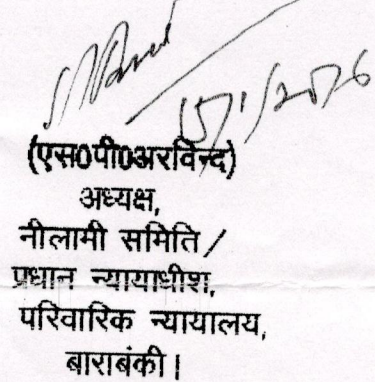 15/1/2026
(एस0पी0अरविन्द)
अध्यक्ष,
नीलामी समिति /
प्रधान न्यायाधीश,
परिवारिक न्यायालय,
बाराबंकी।